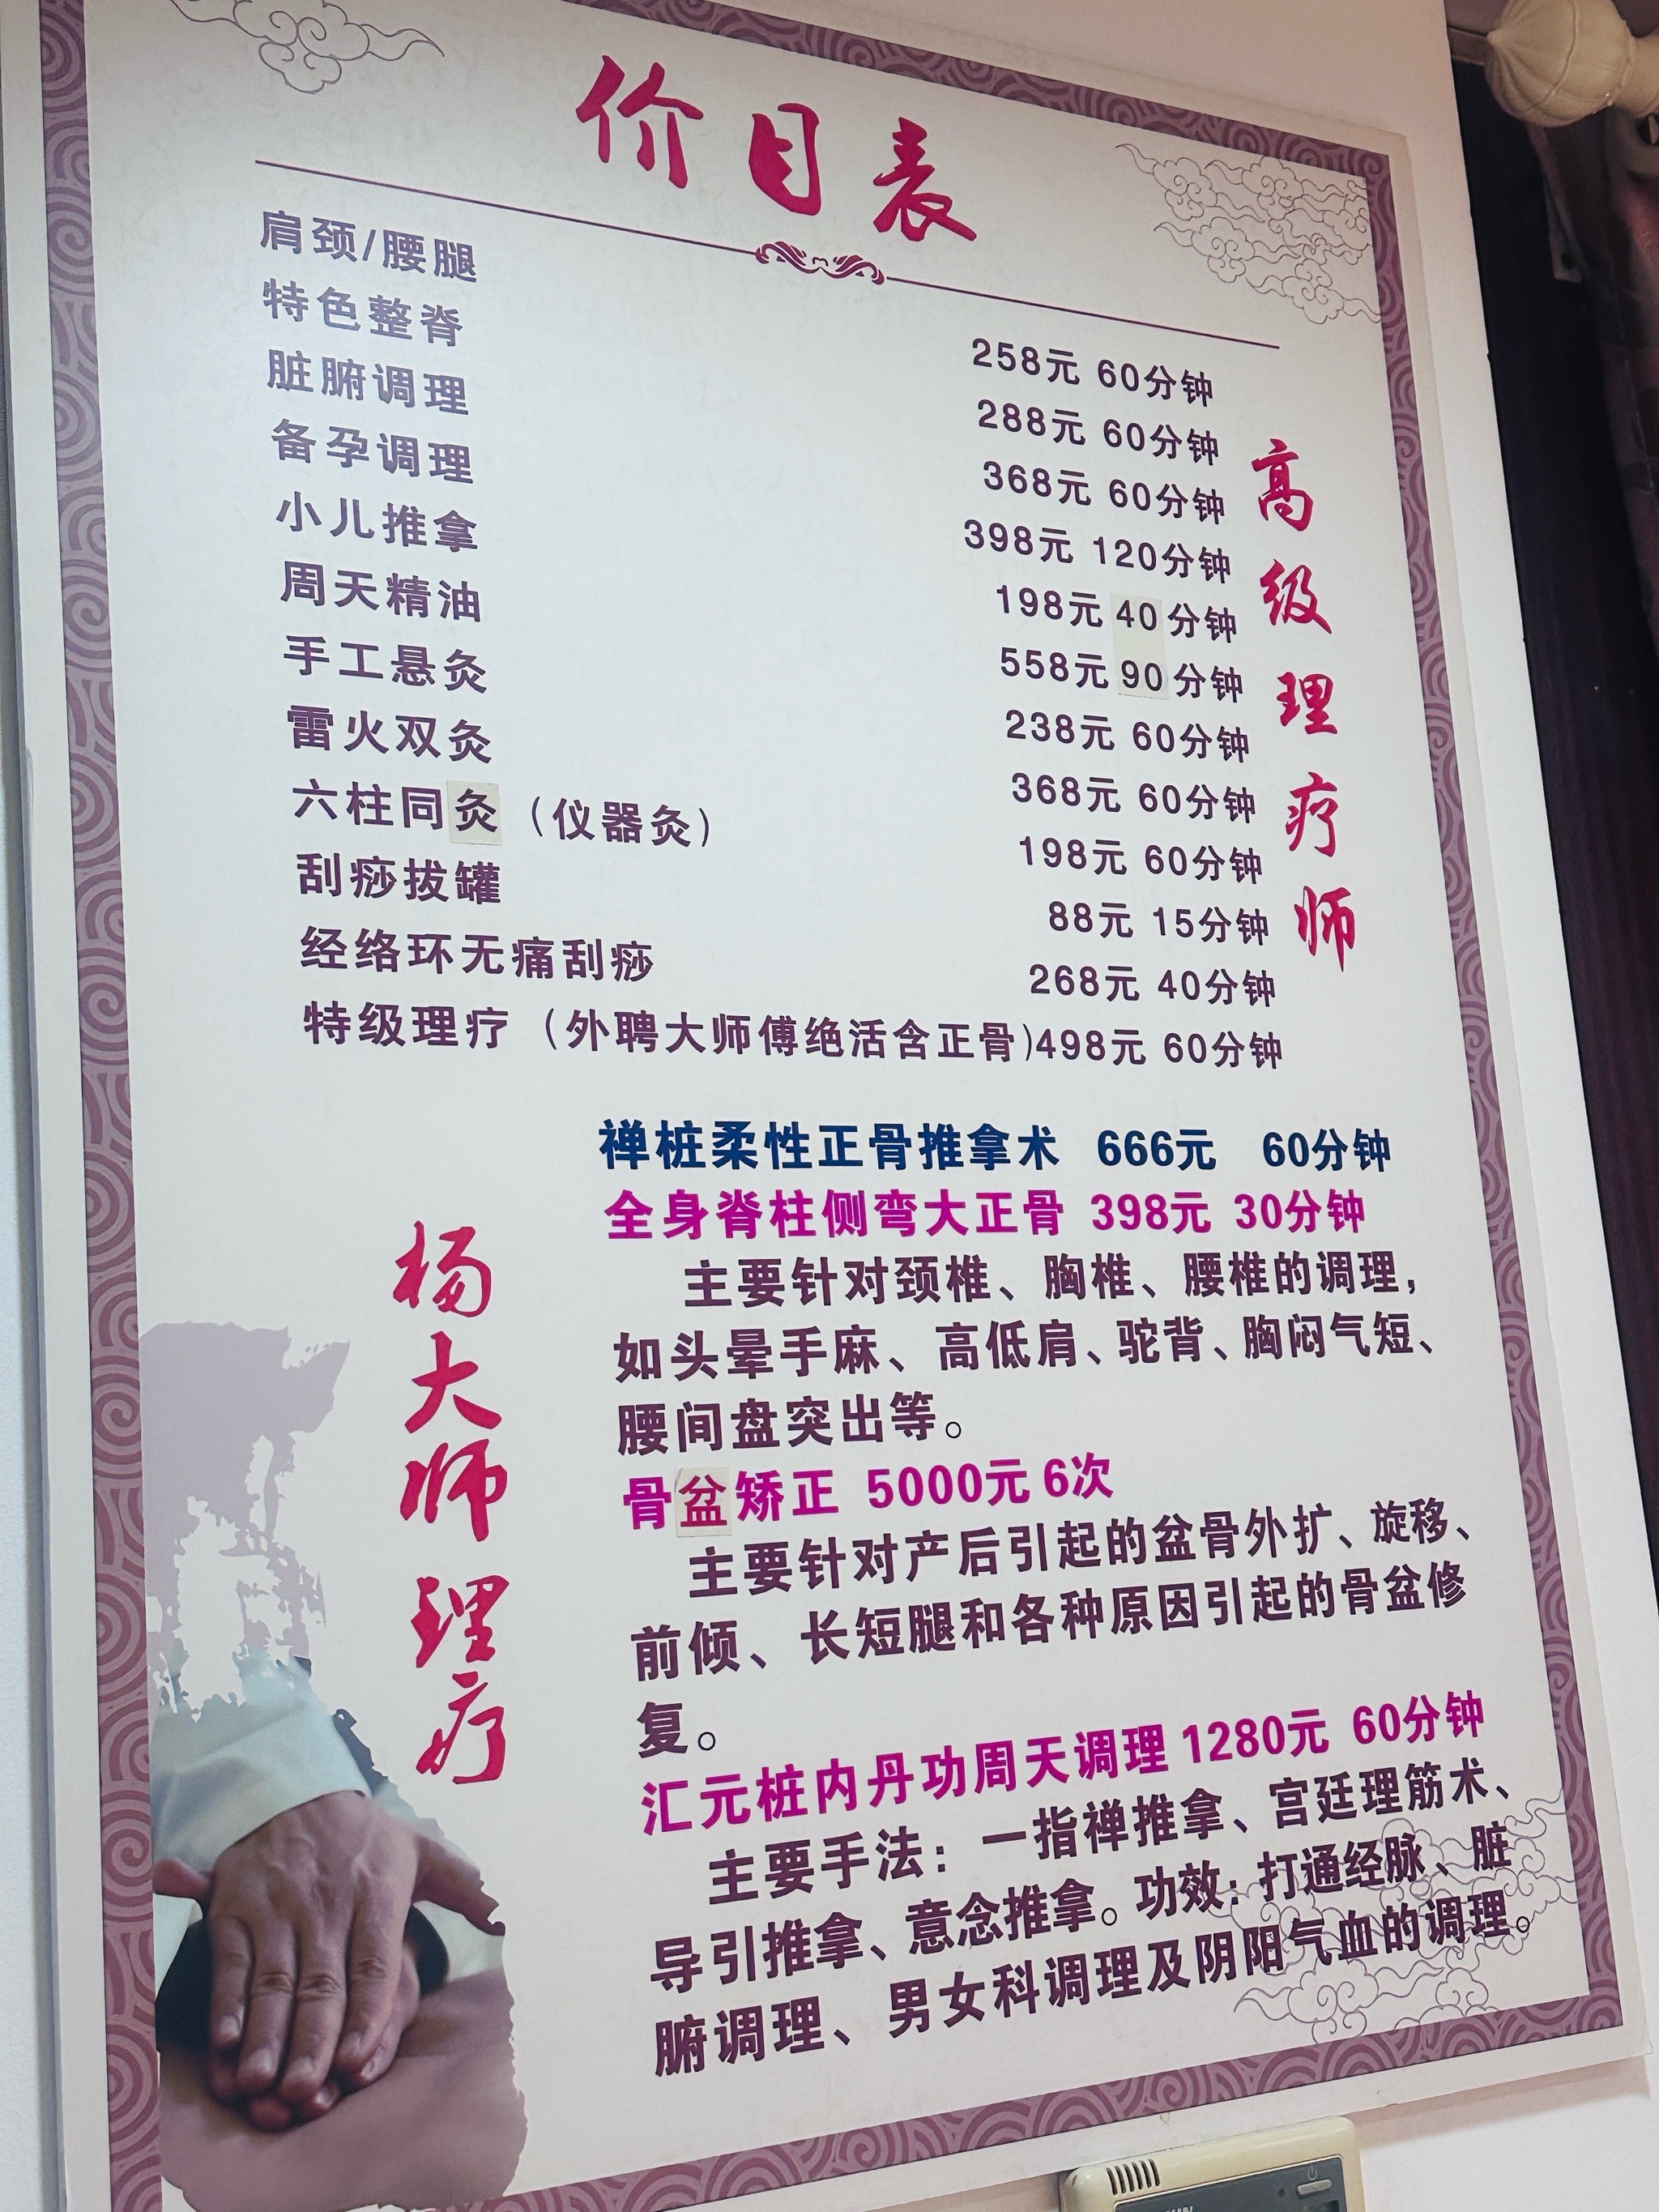 价目表
肩颈/腰腿 258元 60分钟
特色整脊 288元 60分钟
脏腑调理 368元 60分钟
备孕调理 398元 120分钟
小儿推拿 198元 40分钟
周天精油 558元 90分钟
手工悬灸 238元 60分钟
雷火双灸 368元 60分钟
六柱同灸（仪器灸） 198元 60分钟
刮痧拔罐 88元 15分钟
经络环无痛刮痧 268元 40分钟
特级理疗（外聘大师傅绝活含正骨)498元 60分钟
高级理疗师
杨大师理疗
禅桩柔性正骨推拿术 666元 60分钟
全身脊柱侧弯大正骨 398元 30分钟
主要针对颈椎、胸椎、腰椎的调理，
如头晕手麻、高低肩、驼背、胸闷气短、
腰间盘突出等。
骨盆矫正 5000元 6次
主要针对产后引起的盆骨外扩、旋移、
前倾、长短腿和各种原因引起的骨盆修
复。
汇元桩内丹功周天调理 1280元 60分钟
主要手法：一指禅推拿、宫廷理筋术、
导引推拿、意念推拿。功效：打通经脉、脏
腑调理、男女科调理及阴阳气血的调理。